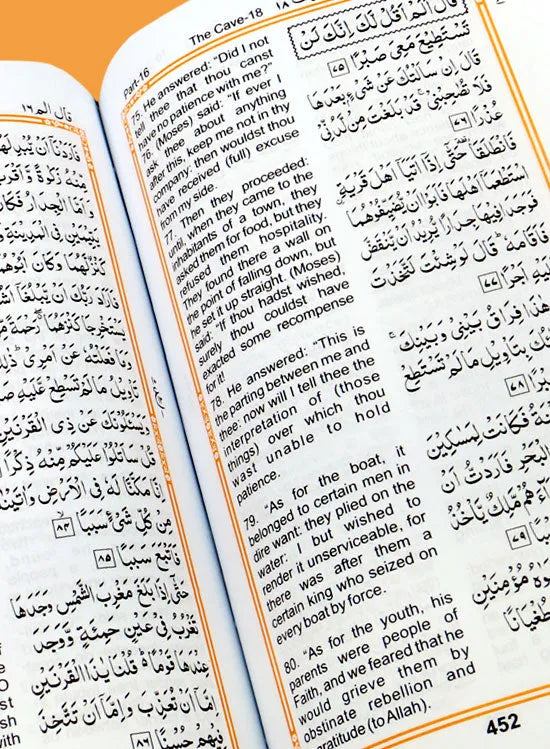 Part-16
The Cave-18
75. He answered: "Did I not
tell thee that thou canst
have no patience with me?"
76. (Moses) said: "If ever I
ask thee about anything
after this, keep me not in thy
company: then wouldst thou
have received (full) excuse
from my side."
77. Then they proceeded:
until, when they came to the
inhabitants of a town, they
asked them for food, but they
refused them hospitality.
They found there a wall on
the point of falling down, but
he set it up straight. (Moses)
said: "If thou hadst wished,
surely thou couldst have
exacted some recompense
for it!"
78. He answered: "This is
the parting between me and
thee: now will I tell thee the
interpretation of (those
things) over which thou
wast unable to hold
patience.
79. "As for the boat, it
belonged to certain men in
dire want: they plied on the
water: I but wished to
render it unserviceable, for
there was after them a
certain king who seized on
every boat by force.
80. "As for the youth, his
parents were people of
Faith, and we feared that he
would grieve them by
obstinate rebellion and
gratitude (to Allah).
قَالَ اَلَمْ اَقُلْ لَّكَ اِنَّكَ لَنْ
تَسْتَطِيْعَ مَعِىَ صَبْرًا ٧٥
قَالَ اِنْ سَاَلْتُكَ عَنْ شَىْءٍۭ بَعْدَهَا
فَلَا تُصٰحِبْنِىْ ۚ قَدْ بَلَغْتَ مِنْ لَّدُنِّىْ
عُذْرًا ٧٦
فَانْطَلَقَا ۥ حَتّٰۤى اِذَاۤ اَتَيَاۤ اَهْلَ قَرْيَةِ
اسْتَطْعَمَاۤ اَهْلَهَا فَاَبَوْا اَنْ يُّضَيِّفُوْهُمَا
فَوَجَدَا فِيْهَا جِدَارًا يُّرِيْدُ اَنْ يَّنْقَضَّ
فَاَقَامَهٗ ؕ قَالَ لَوْ شِئْتَ لَتَّخَذْتَ
عَلَيْهِ اَجْرًا ٧٧
هٰذَا فِرَاقُ بَيْنِىْ وَبَيْنِكَ ۚ
بِتَاْوِيْلِ مَا لَمْ تَسْتَطِعْ
٧٨
فَكَانَتْ لِمَسٰكِيْنَ
الْبَحْرِ فَاَرَدْتُّ اَنْ
مَّلِكٌ يَّاْخُذُ
٧٩
مُؤْمِنَيْنِ
طُغْيَانًا
452
قال الم ١٦
فَاَرَدْنَاۤ اَنْ يُّبْدِلَهُمَا
مِّنْهُ زَكٰوةً وَّاَقْرَبَ
وَاَمَّا الْجِدَارُ فَكَانَ
يَتِيْمَيْنِ فِى الْمَدِيْنَةِ
كَنْزٌ لَّهُمَا وَكَانَ اَبُوْهُمَا
فَاَرَادَ رَبُّكَ اَنْ يَّبْلُغَاۤ
يَسْتَخْرِجَا كَنْزَهُمَا ۖ رَحْمَةً
وَمَا فَعَلْتُهٗ عَنْ اَمْرِىْ ؕ ذٰلِكَ
تَاْوِيْلُ مَا لَمْ تَسْطِعْ عَّلَيْهِ
وَيَسْـَٔلُوْنَكَ عَنْ ذِى الْقَرْنَيْنِ
قُلْ سَاَتْلُوْا عَلَيْكُمْ مِّنْهُ ذِكْرًا
اِنَّا مَكَّنَّا لَهٗ فِى الْاَرْضِ وَاٰتَيْنٰهُ
مِنْ كُلِّ شَىْءٍ سَبَبًا ٨٤
فَاَتْبَعَ سَبَبًا ٨٥
حَتّٰۤى اِذَا بَلَغَ مَغْرِبَ الشَّمْسِ وَجَدَهَا
تَغْرُبُ فِىْ عَيْنٍ حَمِئَةٍ وَّوَجَدَ
عِنْدَهَا قَوْمًا ؕ قُلْنَا يٰذَا الْقَرْنَيْنِ
اِمَّاۤ اَنْ تُعَذِّبَ وَاِمَّاۤ اَنْ تَتَّخِذَ
فِيْهِمْ حُسْنًا ٨٦